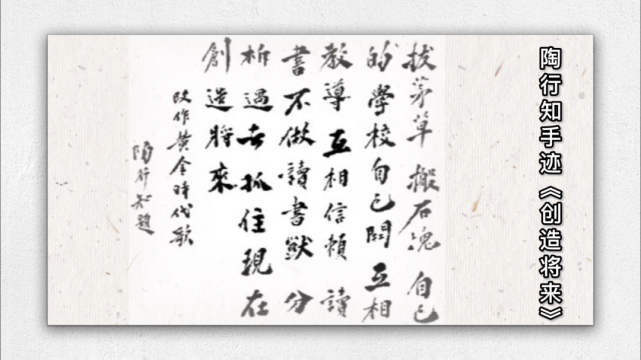 陶行知手迹《创造将来》
拔茅草 搬石塊 自己
的學校自己開 互相
教導 互相信賴 讀
書不做讀書獸 分
析過去 抓住現在
創造將來
改作黃金時代歌
陶行知題